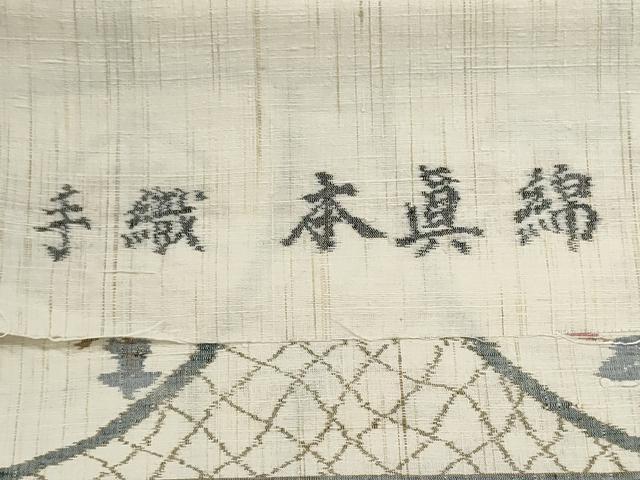 手織 本眞綿